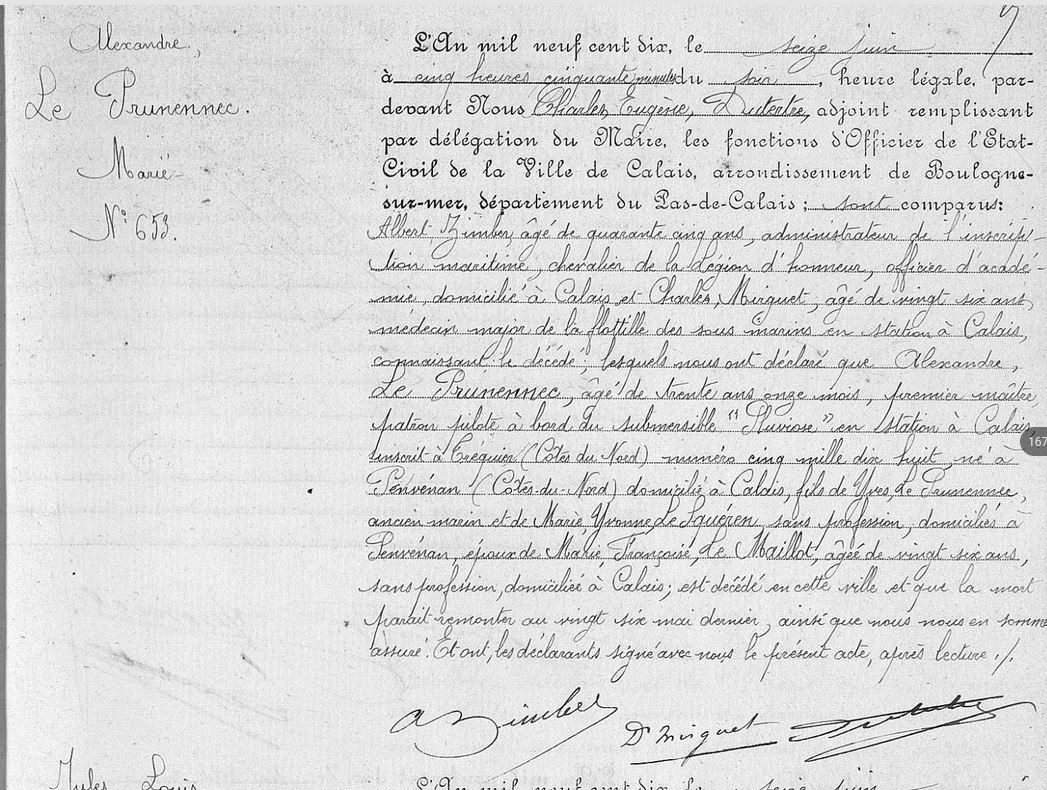 Alexandre,
Le Prunennec.
Marié
N° 653.
L'An mil neuf cent dix, le seize juin
à cinq heures cinquante minutes du soir, heure légale, par-
devant Nous Charles, Eugène, Dutertre, adjoint remplissant
par délégation du Maire, les fonctions d'Officier de l'Etat-
Civil de la Ville de Calais, arrondissement de Boulogne-
sur-mer, département du Pas-de-Calais; sont comparus:
Albert, Zimber, âgé de quarante cinq ans, administrateur de l'inscrip-
tion maritime, chevalier de la Légion d'honneur, officier d'acadé-
mie, domicilié à Calais et Charles, Mirguet, âgé de vingt six ans,
médecin major de la flottille des sous marins en station à Calais,
connaissant le décédé; lesquels nous ont déclaré que Alexandre,
Le Prunennec, âgé de trente ans onze mois, premier maître
patron pilote à bord du submersible "Pluviose" en station à Calais
inscrit à Tréguier (Côtes du Nord) numéro cinq mille dix huit, né à
Penvénan (Côtes-du-Nord) domicilié à Calais, fils de Yves, Le Prunennec,
ancien marin et de Marie Yvonne, Le Squéren, sans profession, domiciliés à
Penvénan, époux de Marie, Françoise, Le Maillot, âgée de vingt six ans,
sans profession, domiciliée à Calais; est décédé en cette ville et que la mort
parait remonter au vingt six mai dernier, ainsi que nous nous en somme
assuré. Et ont, les déclarants signé avec nous le présent acte, après lecture ./.
A Zimber
Dr Mirguet
Jules Louis
L'An mil neuf cent dix, le seize juin
167